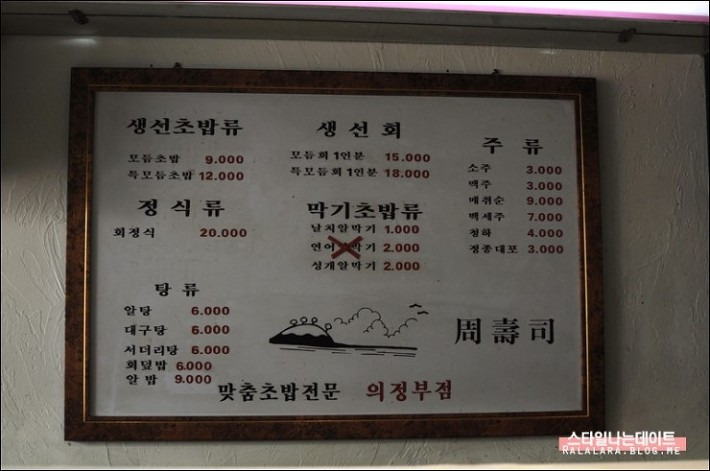 생선초밥류
모듬초밥 9.000
특모듬초밥 12.000
정식류
회정식 20.000
탕류
알탕 6.000
대구탕 6.000
서더리탕 6.000
회덮밥 6.000
알밥 9.000
생선회
모듬회 1인분 15.000
특모듬회 1인분 18.000
막기초밥류
날치알막기 1.000
연어알막기 2.000
성개알막기 2.000
주류
소주 3.000
맥주 3.000
매취순 9.000
백세주 7.000
청하 4.000
정종대포 3.000
周壽司
맞춤초밥전문 의정부점
스타일나는데이트
RALALARA.BLOG.ME